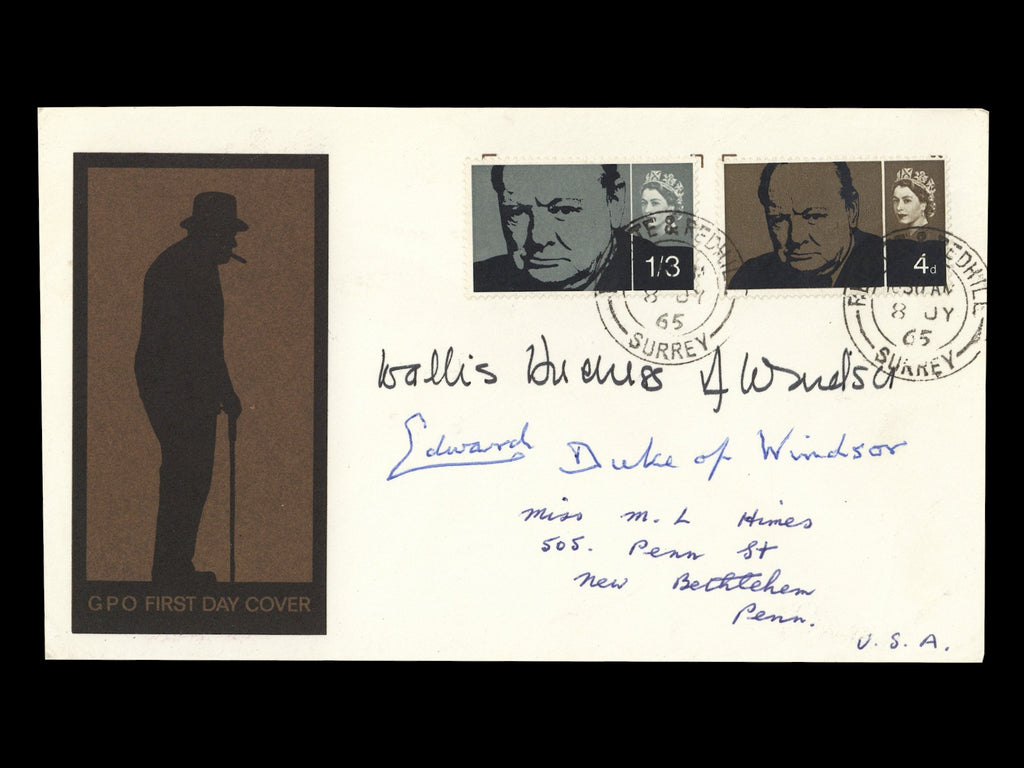 1/3
4d
TE & REDHI
8 JY
65
SURREY
REDHILL
30 AM
8 JY
65
SURREY
Wallis Duchess of Windsor
Edward Duke of Windsor
Miss M. L Himes
505. Penn St
New Bethlehem
Penn.
U. S. A.
GPO FIRST DAY COVER